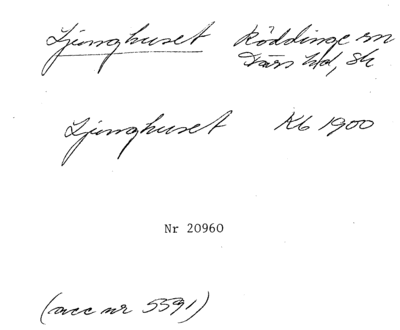 Ljunghuset Röddinge sn
Färs hd, Sk
Ljunghuset Kb 1900
Nr 20960
(acc nr 5591)